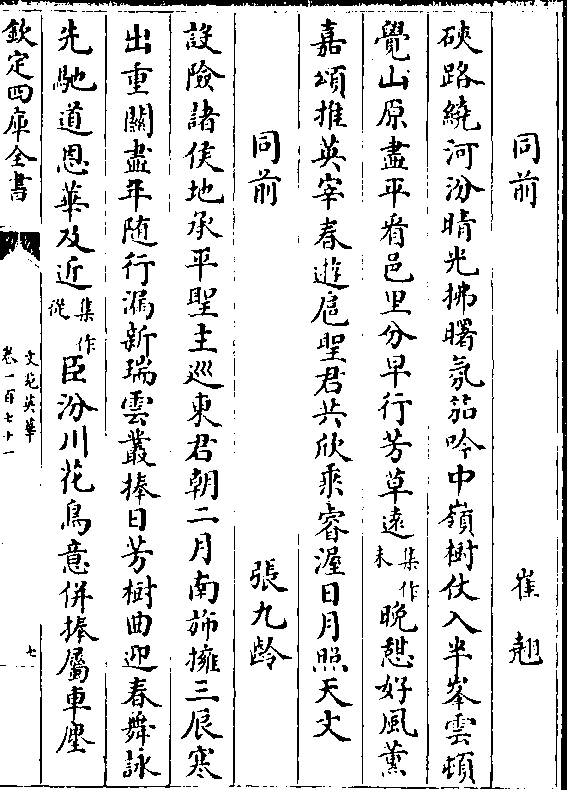 同前　崔翹
硤路繞河汾晴光拂曙氛笳吟中嶺樹仗入半峯雲頓
覺山原盡平看邑里分早行芳草遠集作未晚憇好風薰
嘉頌推英宰春遊扈聖君共欣承睿渥日月照天文
同前　張九齡
設險諸侯地承平聖主巡東君朝二月南斾擁三辰寒
出重關盡年隨行漏新瑞雲叢捧日芳樹曲迎春舞詠
先馳道恩華及近集作從臣汾川花鳥意併捧屬車塵
欽定四庫全書
文苑英華
卷一百七十一
七